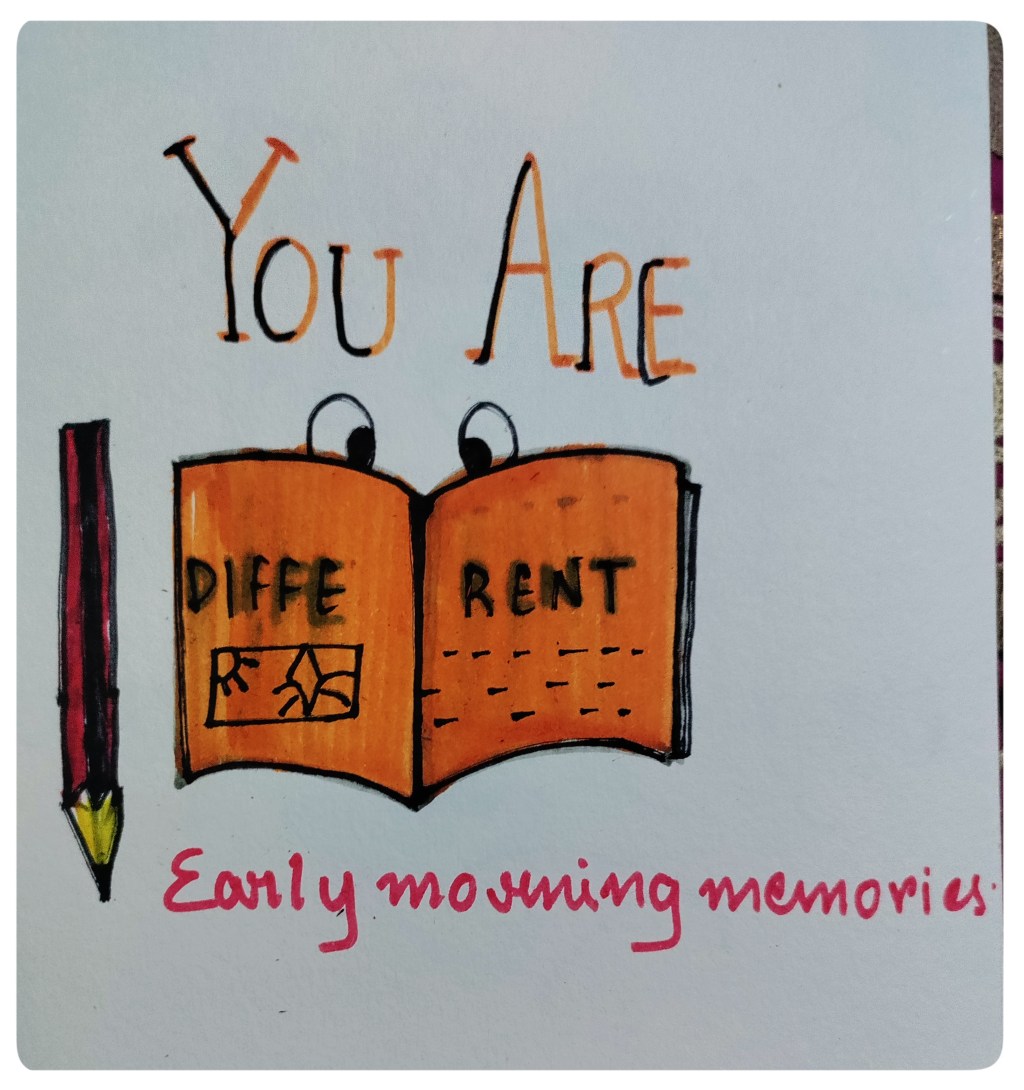 YOU ARE
DIFFE RENT
Early morning memories.